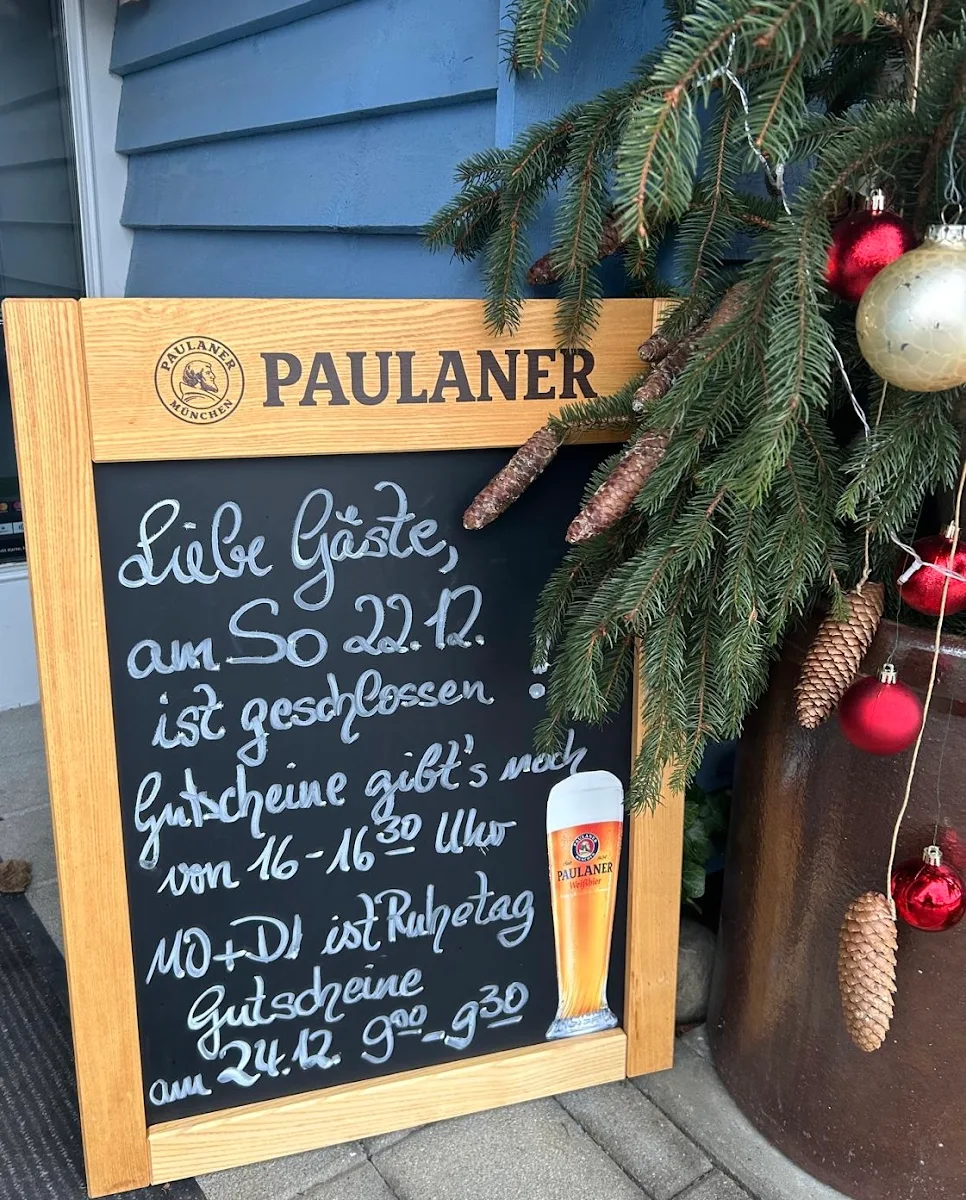 PAULANER
MÜNCHEN
PAULANER
Liebe Gäste,
am So 22.12.
ist geschlossen !
Gutscheine gibt's noch
von 16-16³⁰ Uhr
MO+DI ist Ruhetag
Gutscheine
am 24.12. 9⁰⁰-9³⁰
PAULANER
PAULANER
Weißbier